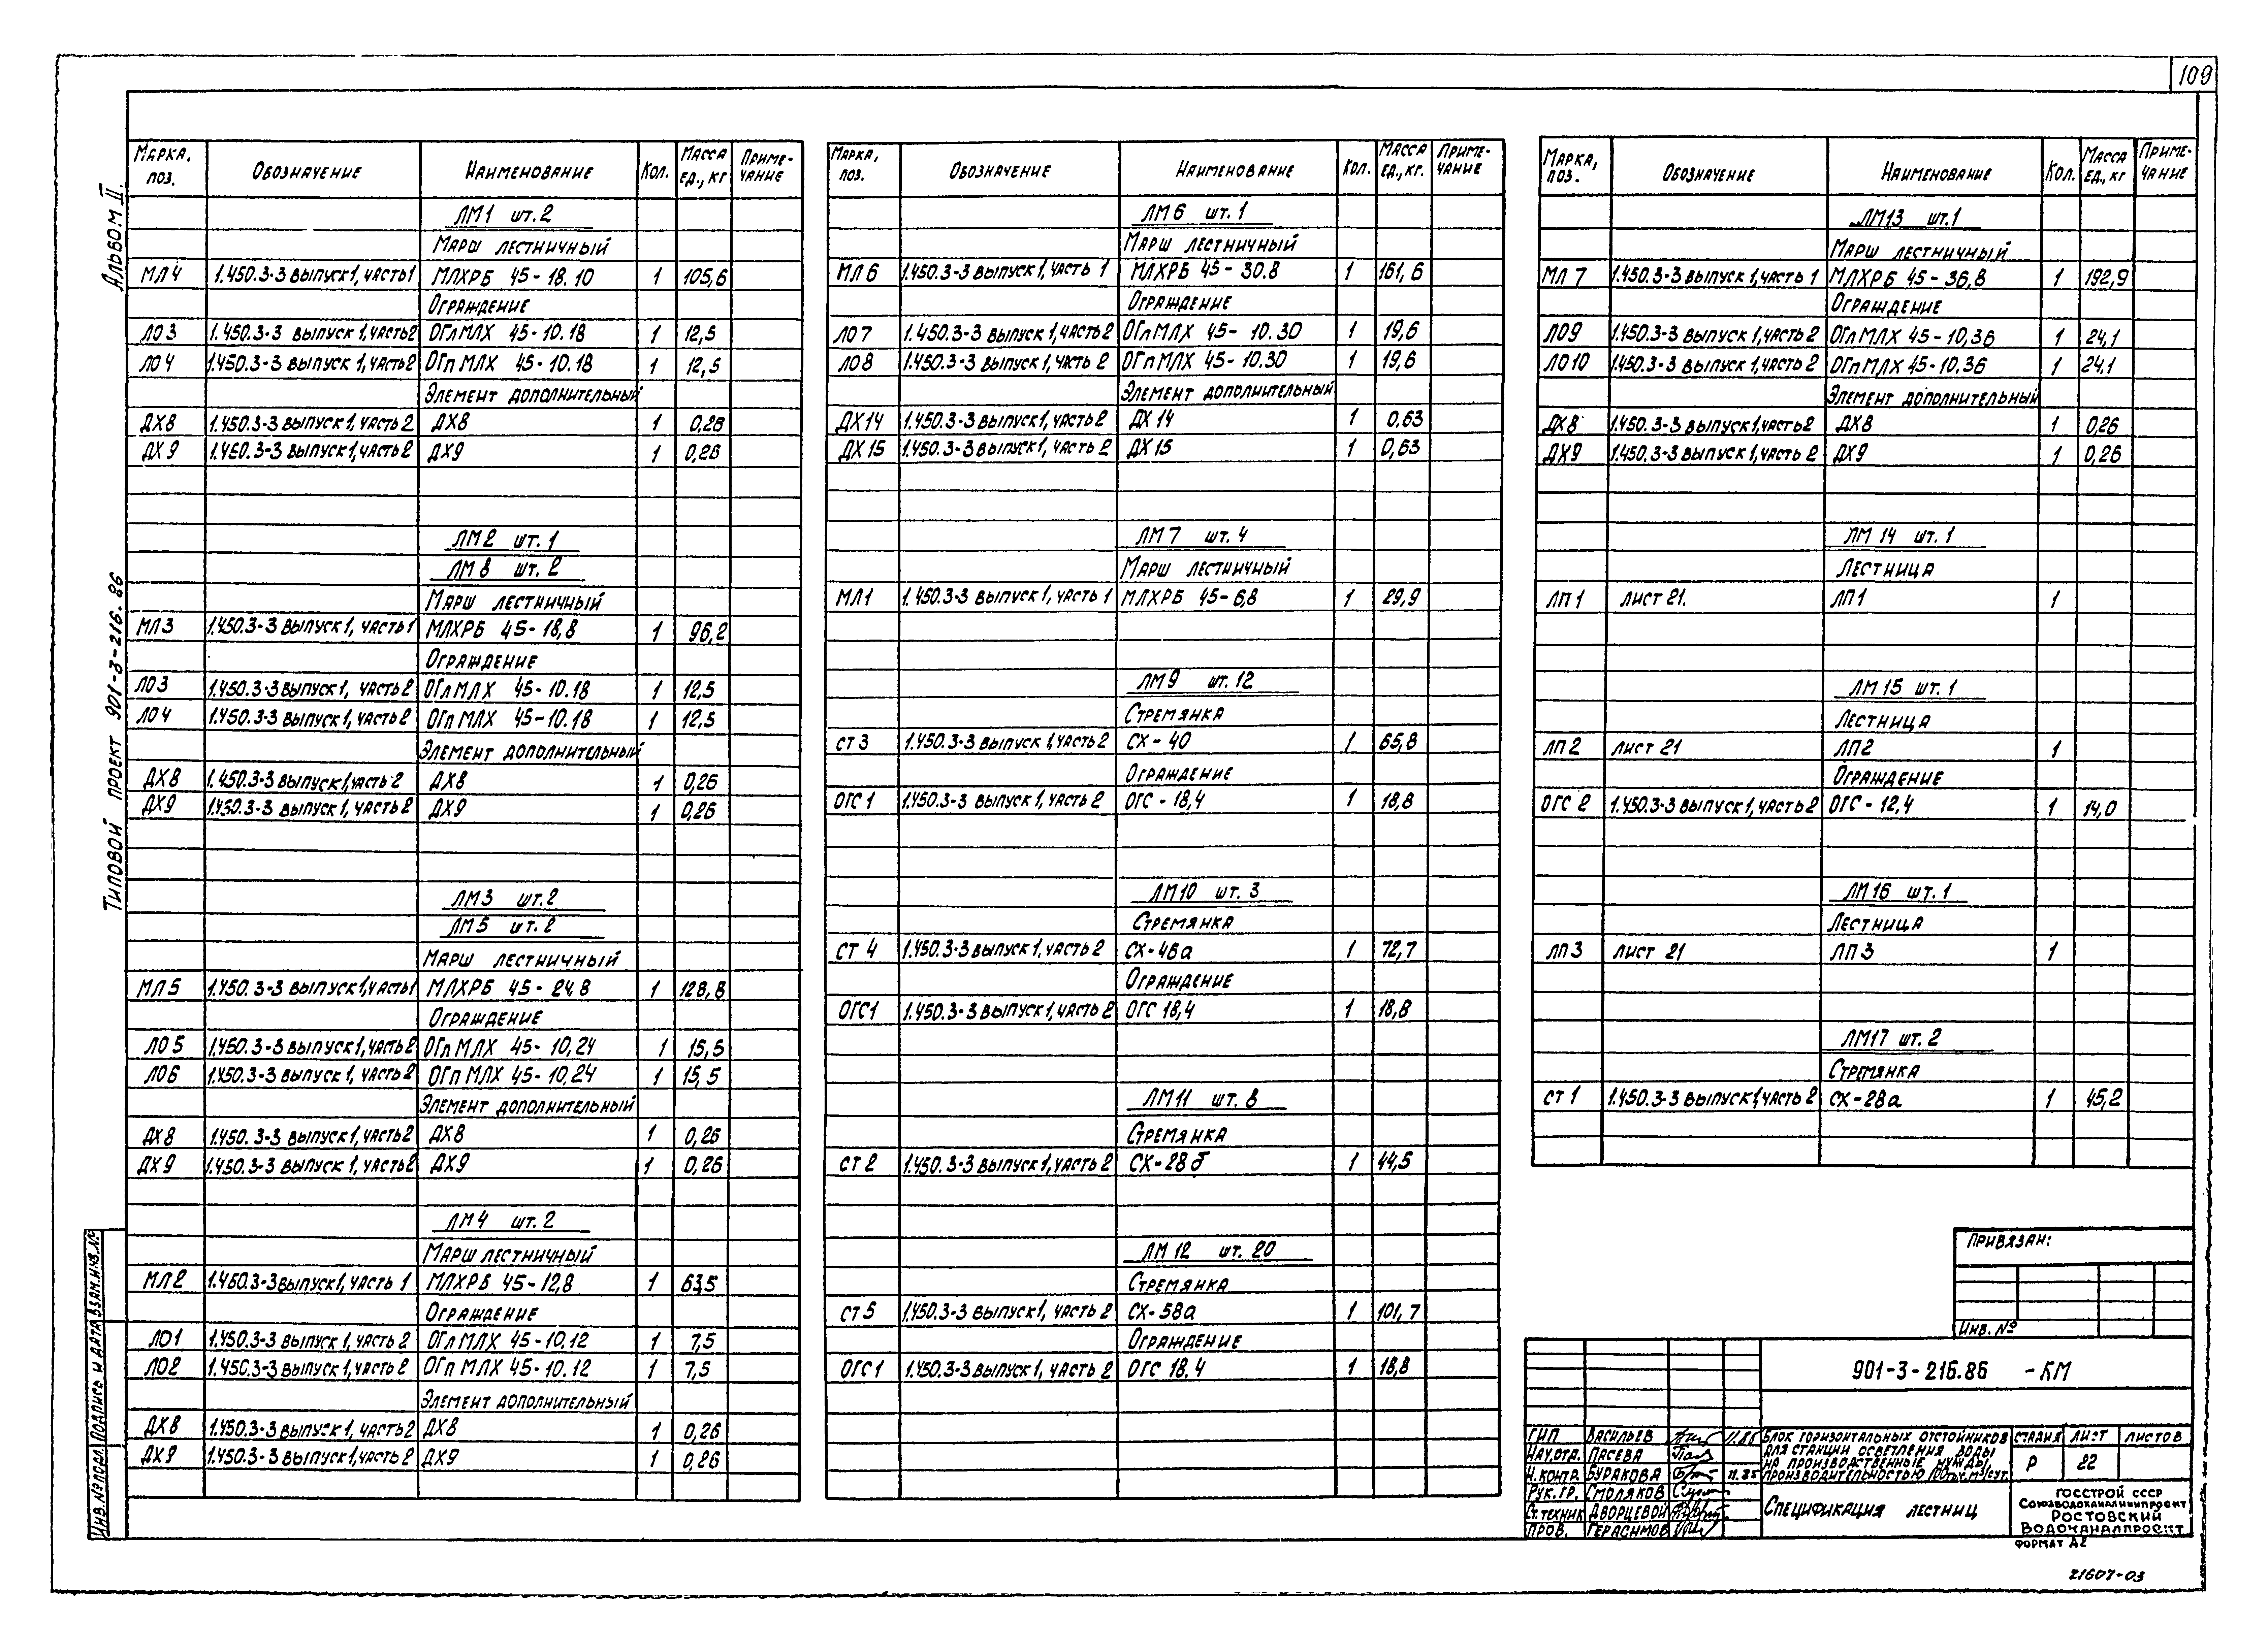 109
Альбом II.
Типовой проект 901-3-216.86
Марка, поз. Обозначение Наименование Кол. Масса ед., кг Приме-чание
ЛМ1 шт. 2
Марш лестничный
МЛ4 1.450.3-3 выпуск 1, часть 1 МЛХРБ 45-18.10 1 105,6
Ограждение
ЛО3 1.450.3-3 выпуск 1, часть 2 ОГлМЛХ 45-10.18 1 12,5
ЛО4 1.450.3-3 выпуск 1, часть 2 ОГпМЛХ 45-10.18 1 12,5
Элемент дополнительный
ДХ8 1.450.3-3 выпуск 1, часть 2 ДХ8 1 0,26
ДХ9 1.450.3-3 выпуск 1, часть 2 ДХ9 1 0,26
ЛМ2 шт. 1
ЛМ8 шт. 2
Марш лестничный
МЛ3 1.450.3-3 выпуск 1, часть 1 МЛХРБ 45-18,8 1 96,2
Ограждение
ЛО3 1.450.3-3 выпуск 1, часть 2 ОГлМЛХ 45-10.18 1 12,5
ЛО4 1.450.3-3 выпуск 1, часть 2 ОГпМЛХ 45-10.18 1 12,5
Элемент дополнительный
ДХ8 1.450.3-3 выпуск 1, часть 2 ДХ8 1 0,26
ДХ9 1.450.3-3 выпуск 1, часть 2 ДХ9 1 0,26
ЛМ3 шт. 2
ЛМ5 шт. 2
Марш лестничный
МЛ5 1.450.3-3 выпуск 1, часть 1 МЛХРБ 45-24.8 1 128,8
Ограждение
ЛО5 1.450.3-3 выпуск 1, часть 2 ОГлМЛХ 45-10,24 1 15,5
ЛО6 1.450.3-3 выпуск 1, часть 2 ОГпМЛХ 45-10,24 1 15,5
Элемент дополнительный
ДХ8 1.450.3-3 выпуск 1, часть 2 ДХ8 1 0,26
ДХ9 1.450.3-3 выпуск 1, часть 2 ДХ9 1 0,26
ЛМ4 шт. 2
Марш лестничный
МЛ2 1.450.3-3 выпуск 1, часть 1 МЛХРБ 45-12,8 1 63,5
Ограждение
ЛО1 1.450.3-3 выпуск 1, часть 2 ОГлМЛХ 45-10.12 1 7,5
ЛО2 1.450.3-3 выпуск 1, часть 2 ОГпМЛХ 45-10.12 1 7,5
Элемент дополнительный
ДХ8 1.450.3-3 выпуск 1, часть 2 ДХ8 1 0,26
ДХ9 1.450.3-3 выпуск 1, часть 2 ДХ9 1 0,26
Марка, поз. Обозначение Наименование Кол. Масса ед., кг. Приме-чание
ЛМ6 шт. 1
Марш лестничный
МЛ6 1.450.3-3 выпуск 1, часть 1 МЛХРБ 45-30.8 1 161,6
Ограждение
ЛО7 1.450.3-3 выпуск 1, часть 2 ОГлМЛХ 45-10.30 1 19,6
ЛО8 1.450.3-3 выпуск 1, часть 2 ОГпМЛХ 45-10.30 1 19,6
Элемент дополнительный
ДХ14 1.450.3-3 выпуск 1, часть 2 ДХ14 1 0,63
ДХ15 1.450.3-3 выпуск 1, часть 2 ДХ15 1 0,63
ЛМ7 шт. 4
Марш лестничный
МЛ1 1.450.3-3 выпуск 1, часть 1 МЛХРБ 45-6,8 1 29,9
ЛМ9 шт. 12
Стремянка
СТ3 1.450.3-3 выпуск 1, часть 2 СХ-40 1 65,8
Ограждение
ОГС1 1.450.3-3 выпуск 1, часть 2 ОГС-18,4 1 18,8
ЛМ10 шт. 3
Стремянка
СТ4 1.450.3-3 выпуск 1, часть 2 СХ-46а 1 72,7
Ограждение
ОГС1 1.450.3-3 выпуск 1, часть 2 ОГС 18,4 1 18,8
ЛМ11 шт. 8
Стремянка
СТ2 1.450.3-3 выпуск 1, часть 2 СХ-28б 1 44,5
ЛМ12 шт. 20
Стремянка
СТ5 1.450.3-3 выпуск 1, часть 2 СХ-58а 1 101,7
Ограждение
ОГС1 1.450.3-3 выпуск 1, часть 2 ОГС 18.4 1 18,8
Марка, поз. Обозначение Наименование Кол. Масса ед., кг Приме-чание
ЛМ13 шт. 1
Марш лестничный
МЛ7 1.450.3-3 выпуск 1, часть 1 МЛХРБ 45-36,8 1 192,9
Ограждение
ЛО9 1.450.3-3 выпуск 1, часть 2 ОГлМЛХ 45-10,36 1 24,1
ЛО10 1.450.3-3 выпуск 1, часть 2 ОГпМЛХ 45-10.36 1 24,1
Элемент дополнительный
ДХ8 1.450.3-3 выпуск 1, часть 2 ДХ8 1 0,26
ДХ9 1.450.3-3 выпуск 1, часть 2 ДХ9 1 0,26
ЛМ14 шт. 1
Лестница
ЛП1 лист 21. ЛП1 1
ЛМ15 шт. 1
Лестница
ЛП2 лист 21 ЛП2 1
Ограждение
ОГС2 1.450.3-3 выпуск 1, часть 2 ОГС-12,4 1 14,0
ЛМ16 шт. 1
Лестница
ЛП3 лист 21 ЛП3 1
ЛМ17 шт. 2
Стремянка
СТ1 1.450.3-3 выпуск 1, часть 2 СХ-28а 1 45,2
Привязан:
Инв. №
901-3-216.86 -КМ
ГИП Васильев 11.85
Нач.отд. Пасева
Н.контр. Буракова 11.85
Рук.гр. Смоляков
Ст.техник Дворцевой
Пров. Герасимов
Блок горизонтальных отстойников
для станции осветления воды
на производственные нужды,
производительностью 100 тыс.м³/сут.
Стадия Лист Листов
Р 22
Спецификация лестниц
Госстрой СССР
Союзводоканалниипроект
Ростовский
Водоканалпроект
Формат А2
21607-03
Инв.№ подл. Подпись и дата Взам.инв.№